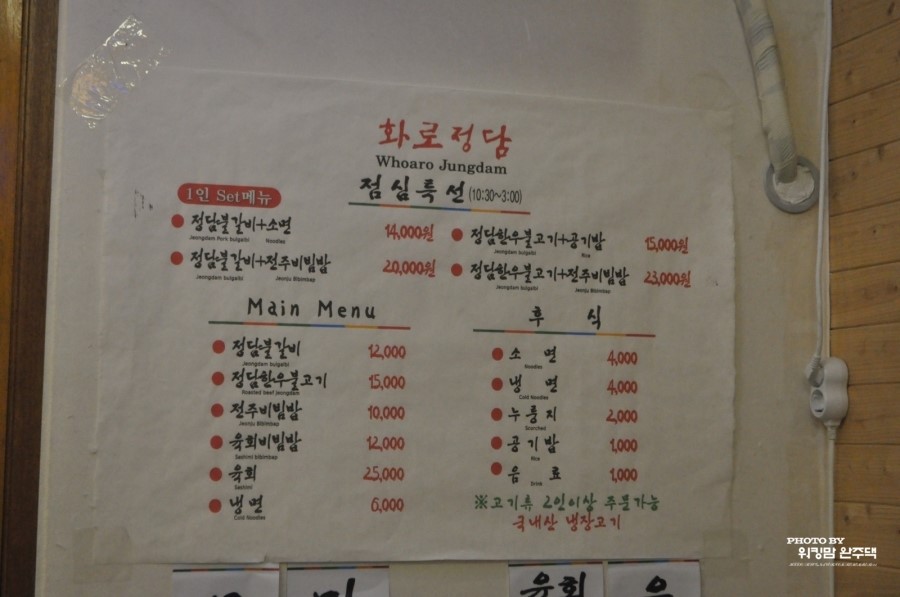 화로정담
Whoaro Jungdam
점심특선(10:30~3:00)
1인 Set메뉴
정담불갈비+소면 14,000원
Jeongdam Pork bulgalbi Noodles
정담불갈비+전주비빔밥 20,000원
Jeongdam bulgalbi Jeonju Bibimbap
정담한우불고기+공기밥 15,000원
Jeongdam bulgalbi Rice
정담한우불고기+전주비빔밥 23,000원
Jeongdam bulgalbi Jeonju Bibimbap
Main Menu
정담불갈비 12,000
Jeongdam bulgalbi
정담한우불고기 15,000
Roasted beef Jeongdam
전주비빔밥 10,000
Jeonju Bibimbap
육회비빔밥 12,000
Sashimi bibimbap
육회 25,000
Sashimi
냉면 6,000
Cold Noodles
후 식
소 면 4,000
Noodles
냉 면 4,000
Cold Noodles
누룽지 2,000
Scorched
공기밥 1,000
Rice
음 료 1,000
Drink
※고기류 2인이상 주문가능
국내산 냉장고기
육회
PHOTO BY
워킹맘 완주댁